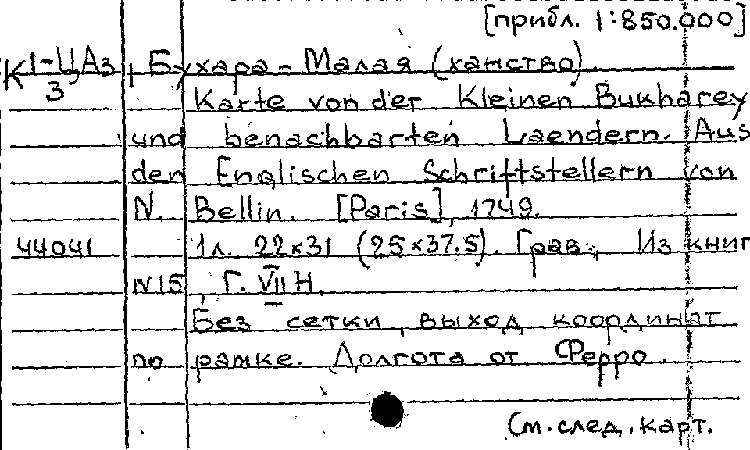 [прибл. 1:850.000]
К 1-ЦАз Бухара - Малая (ханство).
3
Karte von der Kleinen Bukharey
und benachbarten Laendern. Aus
den Englischen Schriftstellern von
N. Bellin. [Paris], 1749.
44041 1л. 22×31 (25×37.5). Грав., Из книг
N15, Г. VII Н.
Без сетки, выход координат
по рамке. Долгота от Ферро.
См. след. карт.